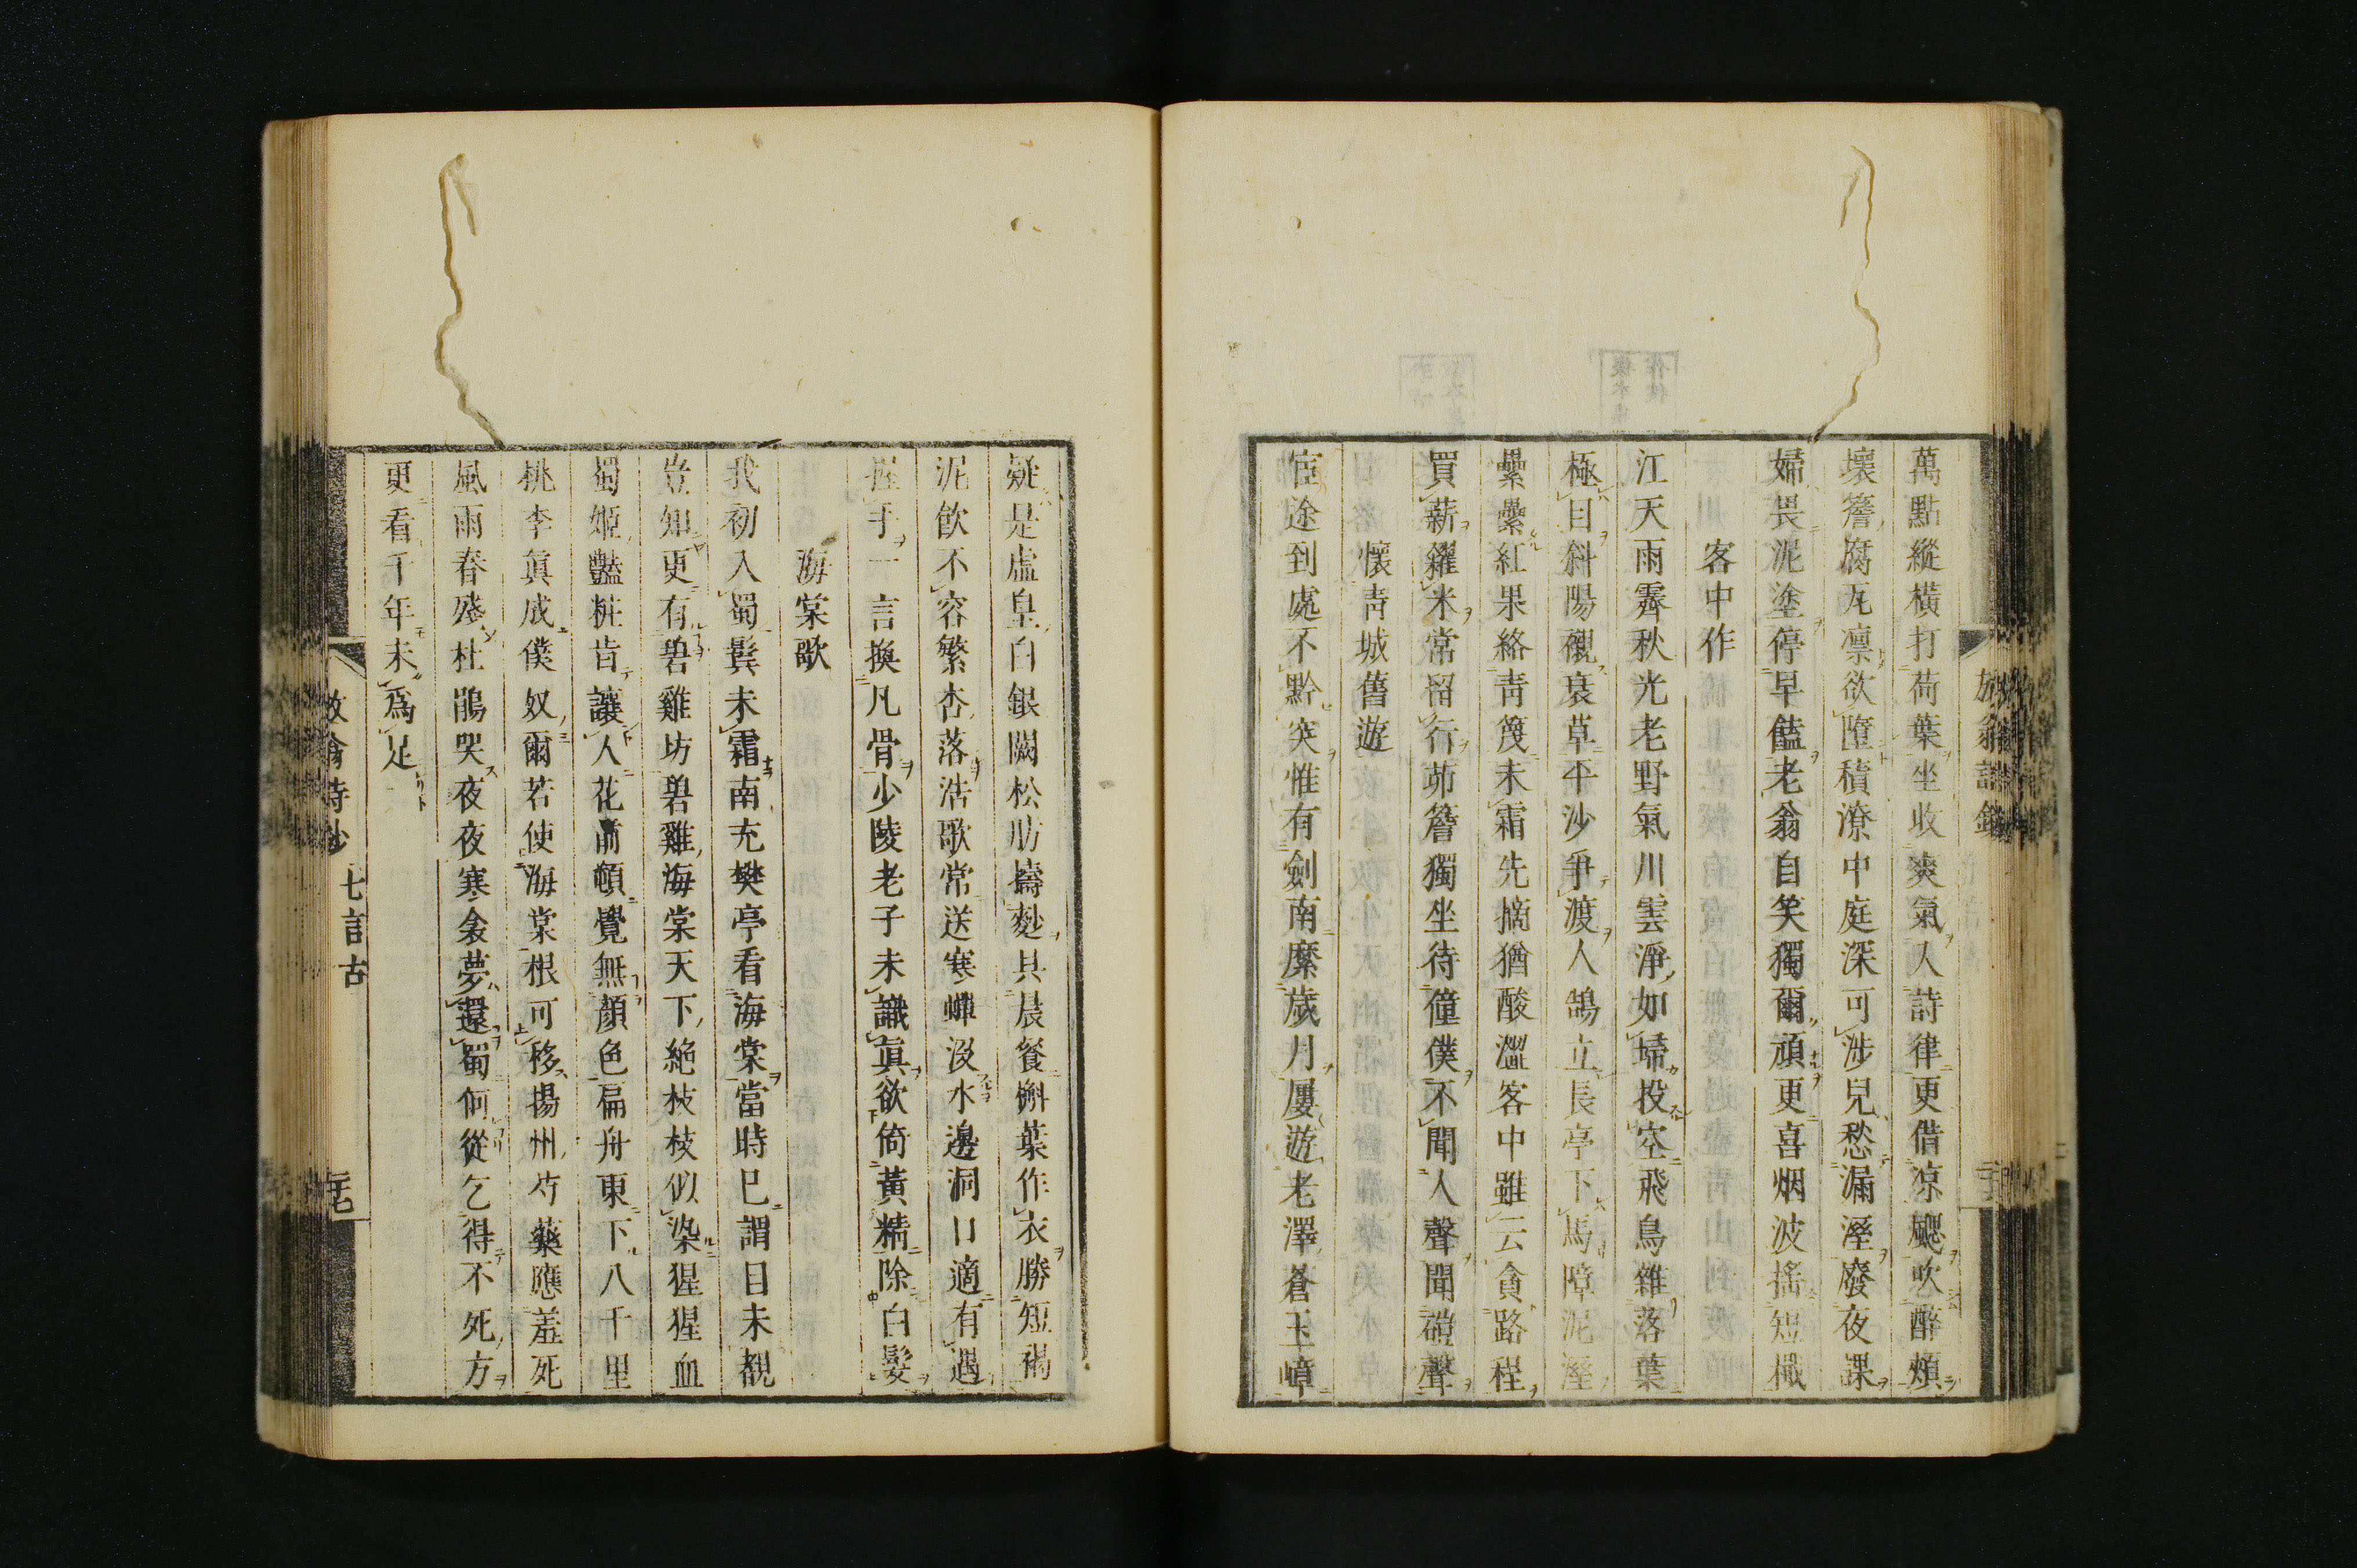 萬點縱橫打荷葉坐收爽氣人詩律更借凉颸吹醉頰
壞簷腐瓦凛欲墮積潦中庭深可涉兒愁漏溼廢夜課
婦畏泥塗停早饁老翁自笑獨爾頑更喜烟波揺短檝
客中作
江天雨霽秋光老野氣川雲淨如埽投空飛鳥雜落葉
極目斜陽襯衰草平沙爭渡人鵠立長亭下馬障泥溼
纍纍紅果絡青篾未霜先摘猶酸澀客中雖云貪路程
買薪糴米常留行茆簷獨坐待僮僕不聞人聲聞磑聲
懷青城舊遊
宦途到處不黔突惟有劍南縻歲月屢遊老澤蒼玉嶂
疑是虛皇白銀闕松肪擣麨具晨餐槲葉作衣勝短褐
泥飲不容繁杏落浩歌常送寒蟬沒水邊洞口適有遇
握手一言換凡骨少陵老子未識眞欲倚黃精除白髮
海棠歌
我初入蜀鬢未霜南充樊亭看海棠當時已謂目未覩
豈知更有碧雞坊碧雞海棠天下絶枝枝似染猩猩血
蜀姬豔粧肯讓人花前頓覺無顔色扁舟東下八千里
桃李眞成僕奴爾若使海棠根可移揚州芍藥應羞死
風雨春殘杜鵑哭夜夜寒衾夢還蜀何從乞得不死方
更看千年未爲足
放翁詩鈔
七言古